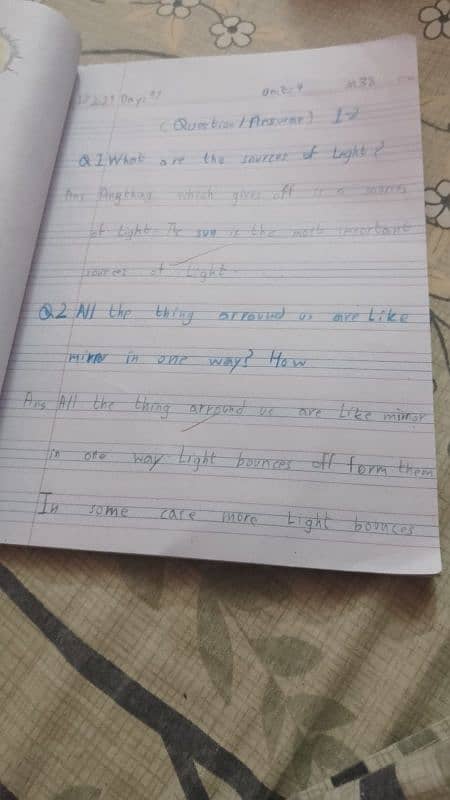 Day:
Unit:4
(Question/Answer) 1-2
Q 1 What are the sources of Light?
Ans Anything which gives off is a sources
of Light. The sun is the most important
sources of Light.
Q2 All the thing arround us are Like
mirror in one way? How
Ans All the thing arround us are Like mirror
in one way Light bounces off form them
In some case more Light bounces